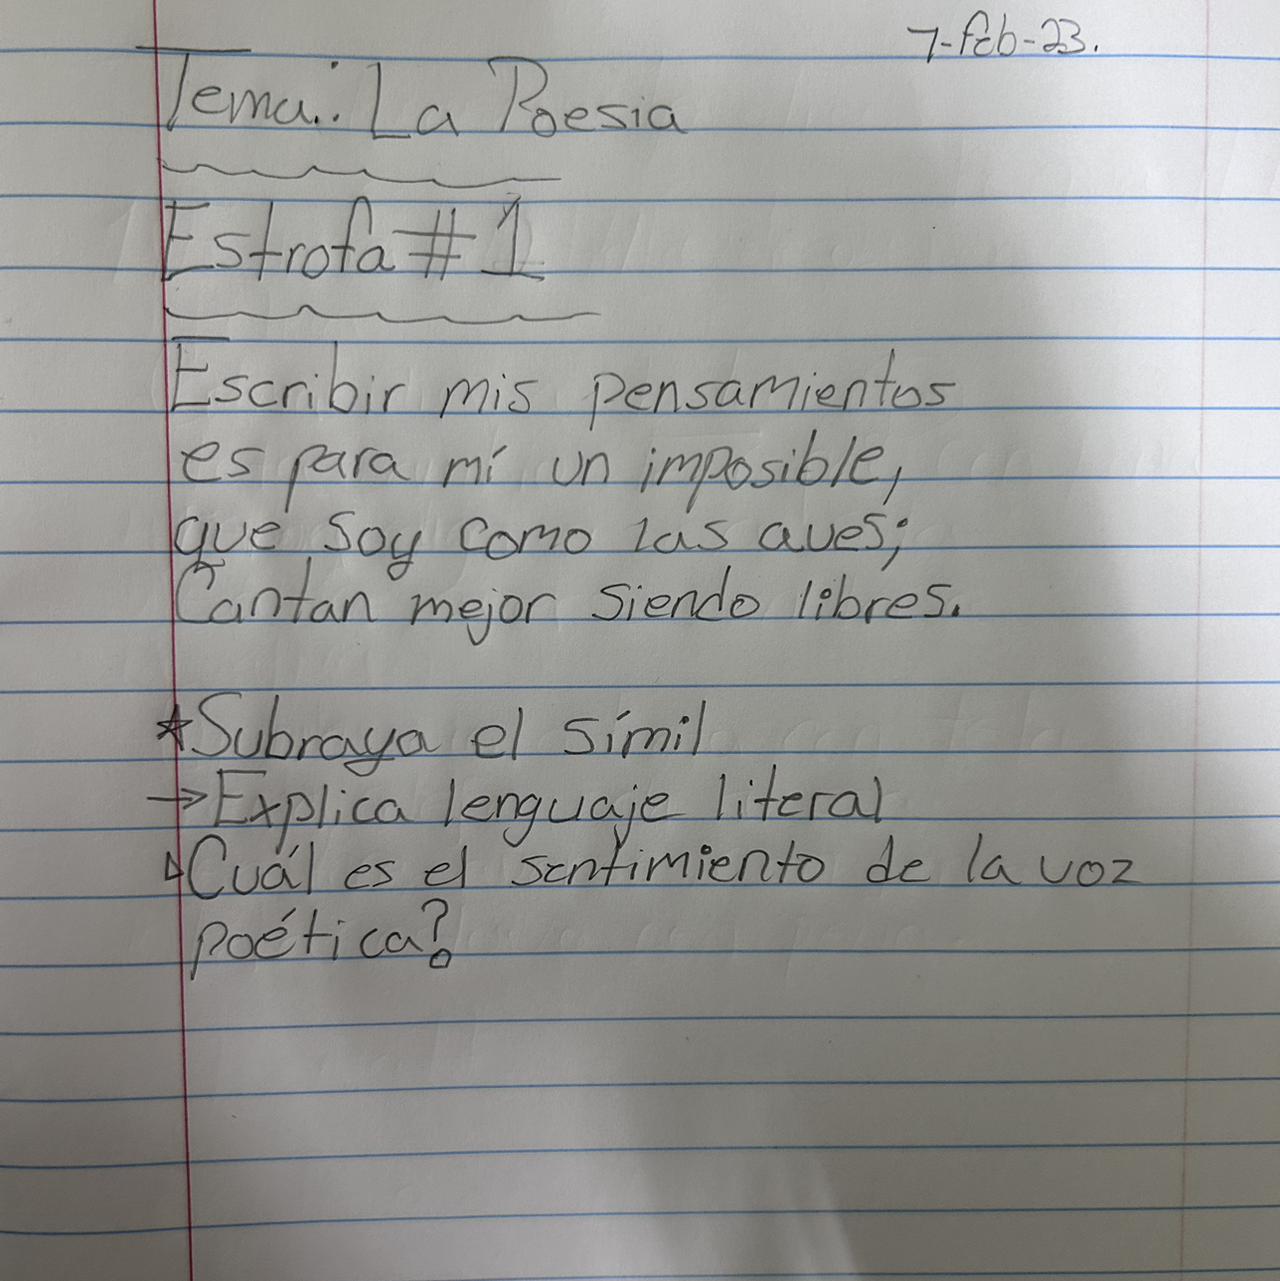 7-feb-23.
Tema: La Poesia
Estrofa #1
Escribir mis pensamientos
es para mí un imposible,
que soy como las aves;
Cantan mejor siendo libres.
*Subraya el símil
→Explica lenguaje literal
▷Cuál es el sentimiento de la voz
poética?